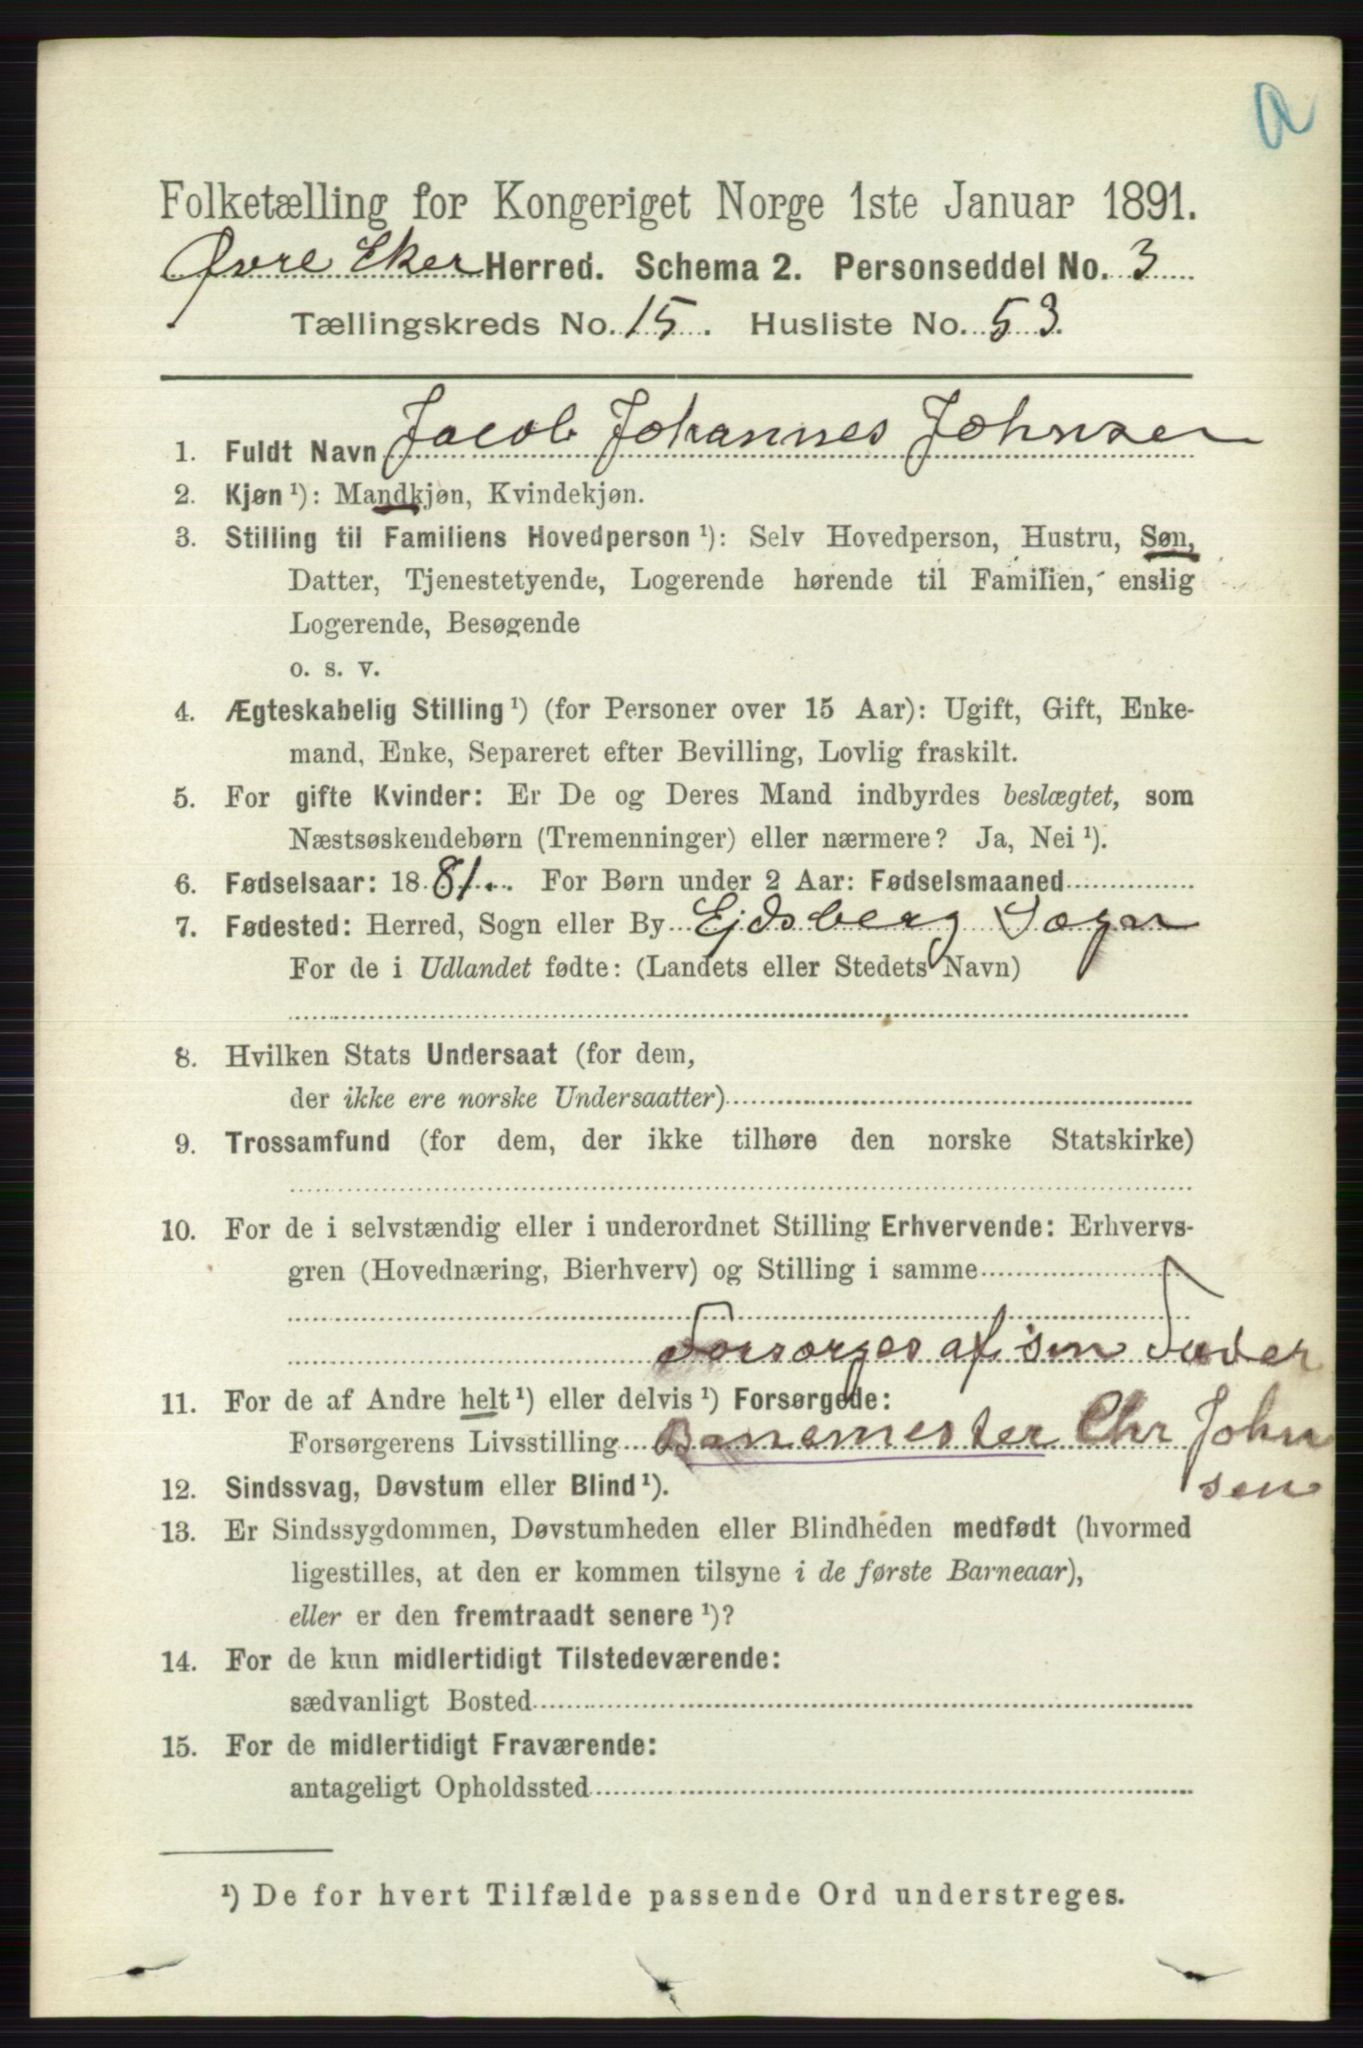 a
Folketælling for Kongeriget Norge 1ste Januar 1891.
Øvre Eker Herred. Schema 2. Personseddel No. 3
Tællingskreds No. 15. Husliste No. 53.
1. Fuldt Navn Jacob Johannes Johnsen
2. Kjøn ¹): Mandkjøn, Kvindekjøn.
3. Stilling til Familiens Hovedperson ¹): Selv Hovedperson, Hustru, Søn,
Datter, Tjenestetyende, Logerende hørende til Familien, enslig
Logerende, Besøgende
o. s. v.
4. Ægteskabelig Stilling ¹) (for Personer over 15 Aar): Ugift, Gift, Enke-
mand, Enke, Separeret efter Bevilling, Lovlig fraskilt.
5. For gifte Kvinder: Er De og Deres Mand indbyrdes beslægtet, som
Næstsøskendebørn (Tremenninger) eller nærmere? Ja, Nei ¹).
6. Fødselsaar: 1881. For Børn under 2 Aar: Fødselsmaaned
7. Fødested: Herred, Sogn eller By Ejdsberg Sogn
For de i Udlandet fødte: (Landets eller Stedets Navn)
8. Hvilken Stats Undersaat (for dem,
der ikke ere norske Undersaatter)
9. Trossamfund (for dem, der ikke tilhøre den norske Statskirke)
10. For de i selvstændig eller i underordnet Stilling Erhvervende: Erhvervs-
gren (Hovednæring, Bierhverv) og Stilling i samme
Forsørges af sin Fader
11. For de af Andre helt ¹) eller delvis ¹) Forsørgede:
Forsørgerens Livsstilling Banemester Chr John
sen
12. Sindssvag, Døvstum eller Blind ¹).
13. Er Sindssygdommen, Døvstumheden eller Blindheden medfødt (hvormed
ligestilles, at den er kommen tilsyne i de første Barneaar),
eller er den fremtraadt senere ¹)?
14. For de kun midlertidigt Tilstedeværende:
sædvanligt Bosted
15. For de midlertidigt Fraværende:
antageligt Opholdssted
¹) De for hvert Tilfælde passende Ord understreges.